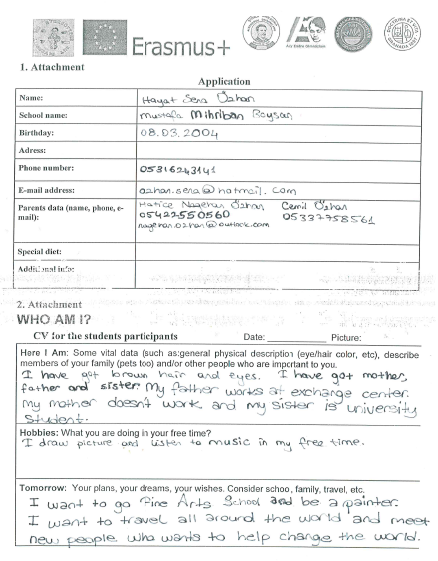 Erasmus+
1. Attachment
Application
Name: Hayat Sena Özhan
School name: Mustafa Mihriban Boysan
Birthday: 08.03.2004
Adress:
Phone number: 05316243141
E-mail address: ozhan.sena@hotmail.com
Parents data (name, phone, e-mail): Hatice Nagehan Özhan Cemil Özhan
05422550560 05337758561
nagehan.ozhan@outlook.com
Special diet:
Additional info:
2. Attachment
WHO AM I?
CV for the students participants Date: Picture:
Here I Am: Some vital data (such as:general physical description (eye/hair color, etc), describe
members of your family (pets too) and/or other people who are important to you.
I have got brown hair and eyes. I have got mother,
father and sister. My father works at exchange center.
My mother doesn't work and my sister is university
student.
Hobbies: What you are doing in your free time?
I draw picture and listen to music in my free time.
Tomorrow: Your plans, your dreams, your wishes. Consider school, family, travel, etc.
I want to go Fine Arts School and be a painter.
I want to travel all around the world and meet
new people who wants to help change the world.